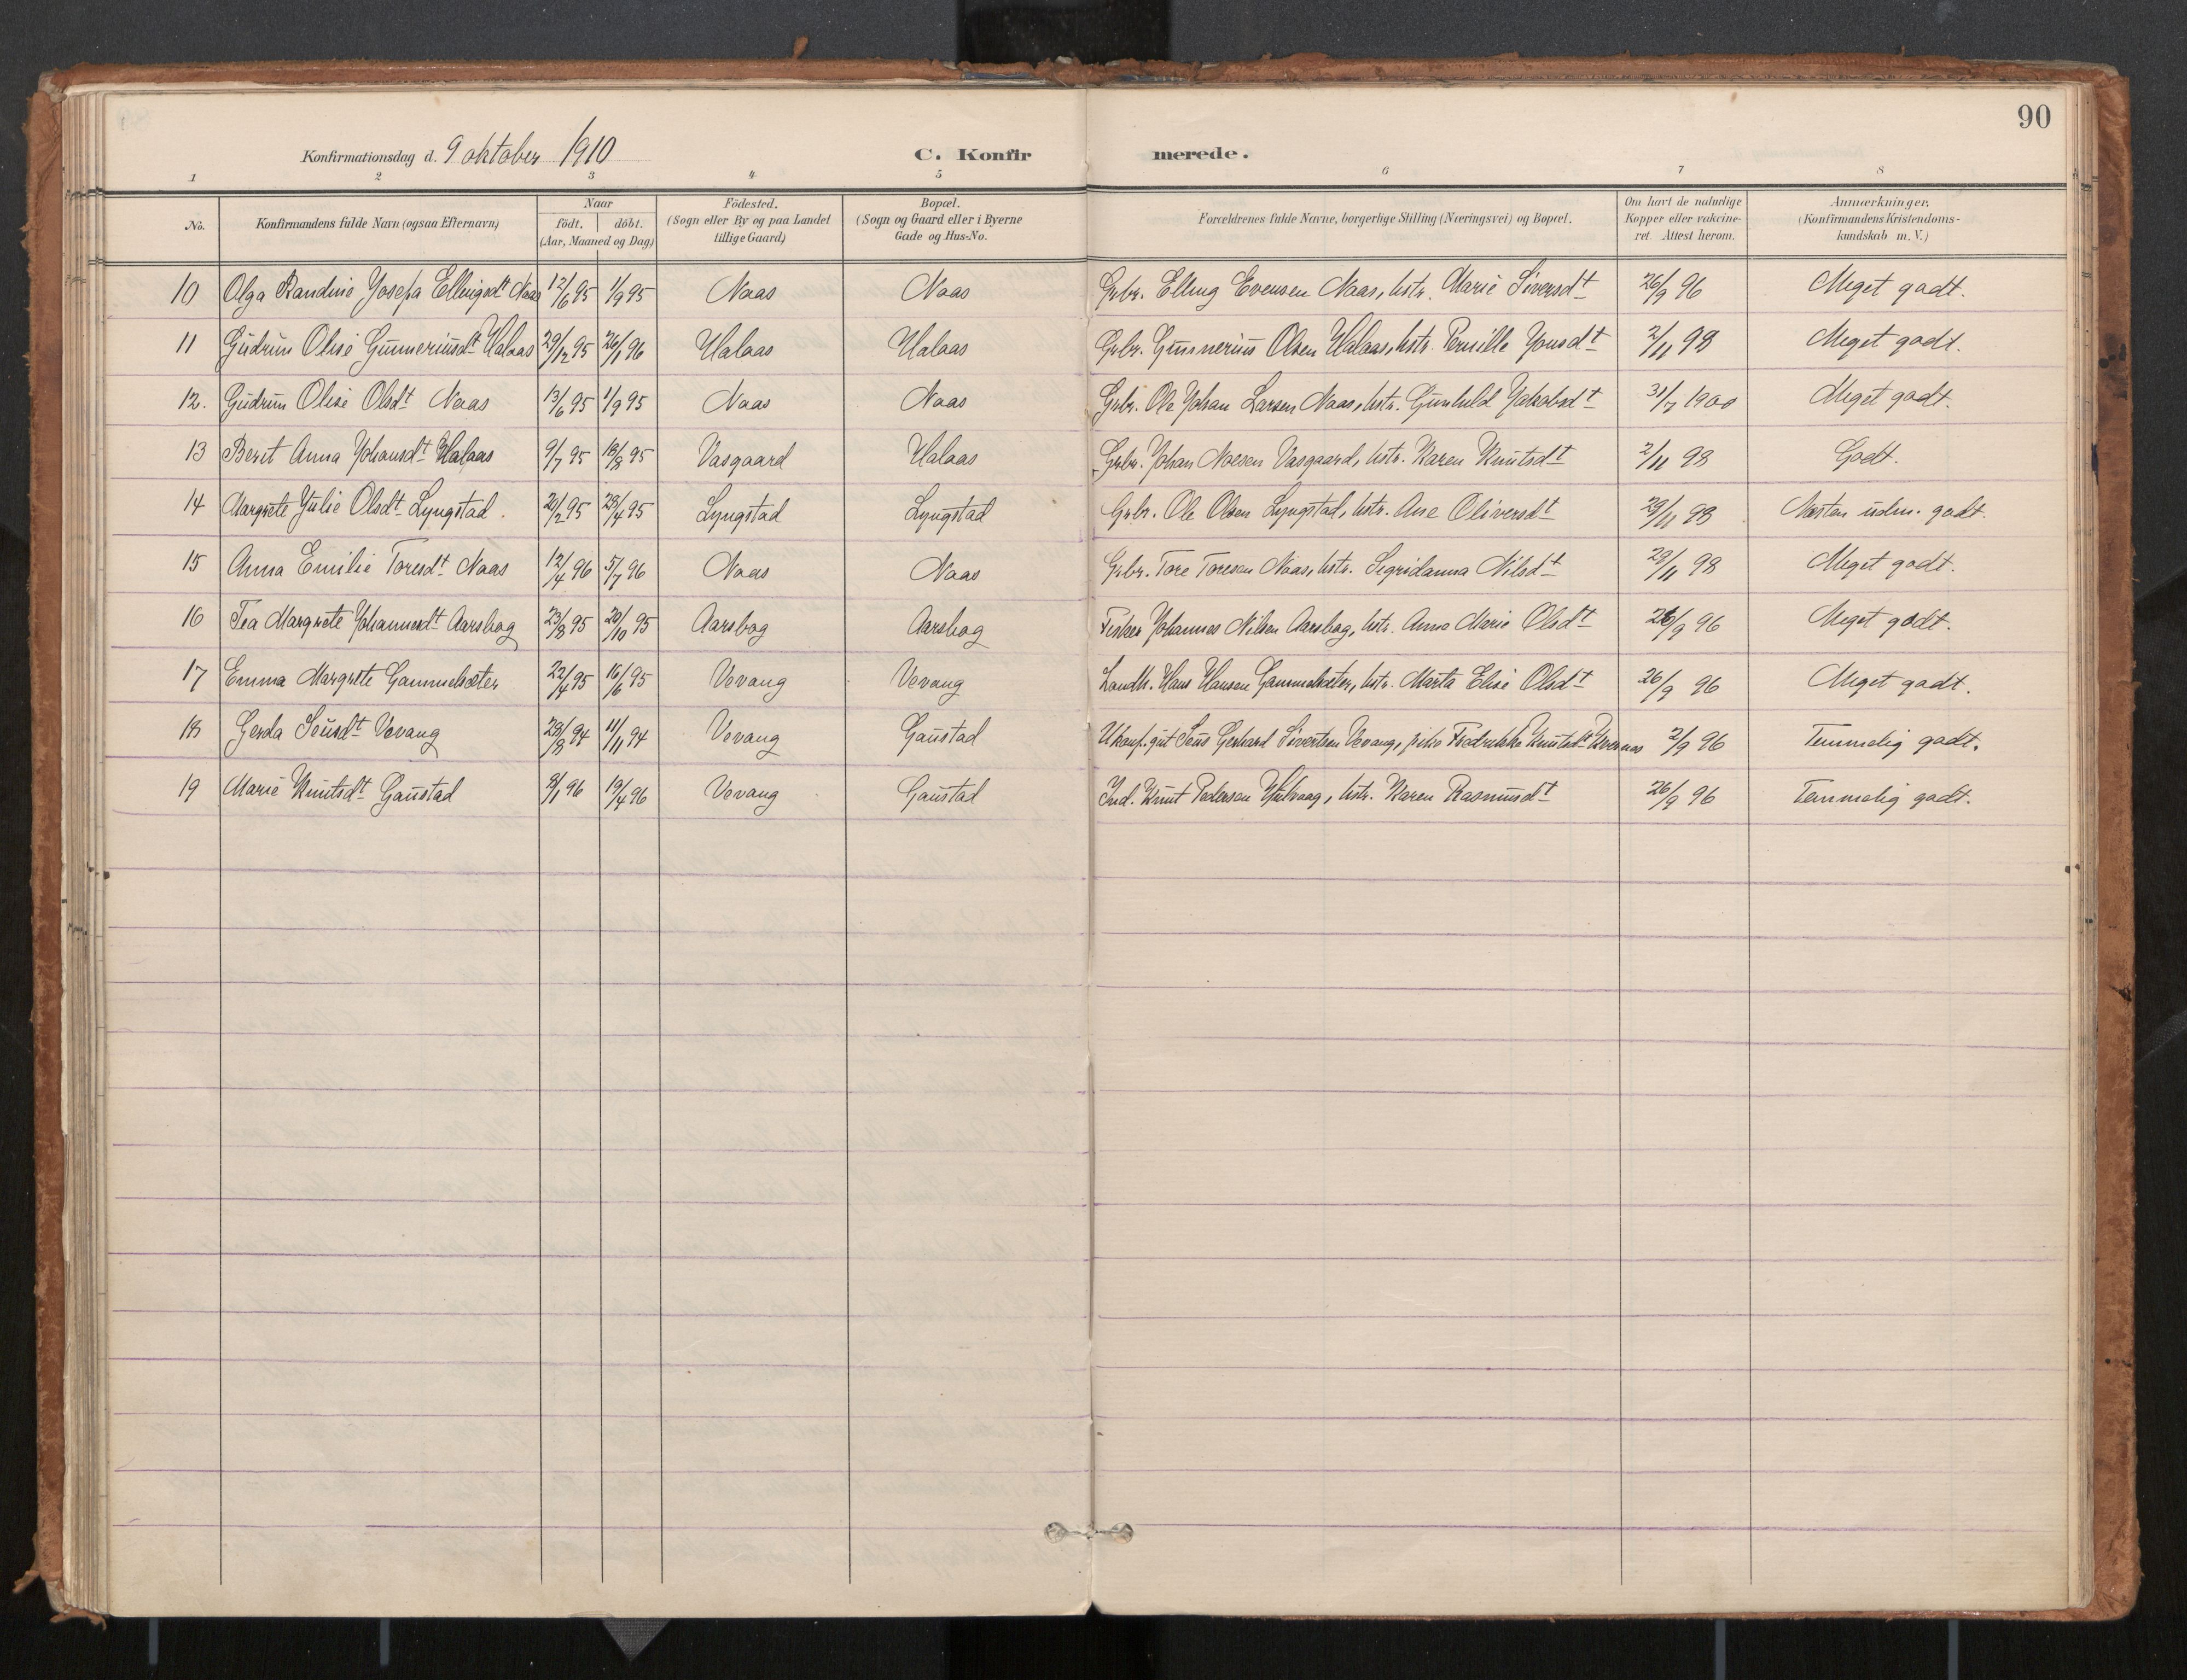 90
Konfirmationsdag d. 9 oktober 1910 C. Konfirmerede.
1 2 3 4 5 6 7 8
No. Konfirmandens fulde Navn (ogsaa Efternavn) Naar født. døbt. (Aar, Maaned og Dag) Fødested. (Sogn eller By og paa Landet tillige Gaard) Bopæl. (Sogn og Gaard eller i Byerne Gade og Hus-No. Forældrenes fulde Navne, borgerlige Stilling (Næringsvei) og Bopæl. Om havt de naturlige Kopper eller vakcineret. Attest herom. Anmærkninger. (Konfirmandens Kristendomskundskab m. V.)
10 Olga Randine Josefa Ellingsdt Naas 12/6 95 1/9 95 Naas Naas Grbr. Elling Evensen Naas, hstr. Marie Siversdt 26/9 96 Meget godt.
11 Gudrun Olise Gunneriusdt Halaas 29/12 95 26/1 96 Halaas Halaas Grbr. Gunnerius Olsen Halaas, hstr. Pernille Jonsdt 2/11 98 Meget godt.
12. Gudrun Olise Olsdt Naas 13/6 95 1/9 95 Naas Naas Grbr. Ole Johan Larsen Naas, hstr. Gunhild Jakobsdt 31/7 1900 Meget godt.
13 Beret Anna Johansdt Halaas 9/7 95 18/8 95 Vasgaard Halaas Grbr. Johan Noesen Vasgaard, hstr. Karen Knutsdt 2/11 98 Godt.
14 Margrete Julie Olsdt Lyngstad. 20/2 95 28/4 95 Lyngstad Lyngstad Grbr. Ole Olsen Lyngstad, hstr. Ane Oliversdt 29/11 98 Næsten udm. godt.
15 Anna Emilie Toresdt Naas 12/4 96 5/7 96 Naas Naas Grbr. Tore Toresen Naas, hstr. Sigridanna Nilsdt 29/11 98 Meget godt.
16 Tea Margrete Johannesdt Aarsbog 23/8 95 20/10 95 Aarsbog Aarsbog Fisker Johannes Nilsen Aarsbog, hstr. Anna Marie Olsdt 26/9 96 Meget godt.
17 Emma Margrete Gammelsæter 22/4 95 16/6 95 Vevang Vevang Landh. Hans Hansen Gammelsæter, hstr. Marta Elise Olsdt 26/9 96 Meget godt.
18 Gerda Jensdt Vevang 28/8 94 11/11 94 Vevang Gaustad Ukonf. gut Jens Gerhard Sivertsen Vevang, pike Fredrikke Knutsdt Kvernes 2/9 96 Temmelig godt.
19 Marie Knutsdt Gaustad 9/1 96 19/4 96 Vevang Gaustad Ind. Knut Pedersen hstr. Karen Rasmusdt 26/9 96 Temmelig godt.